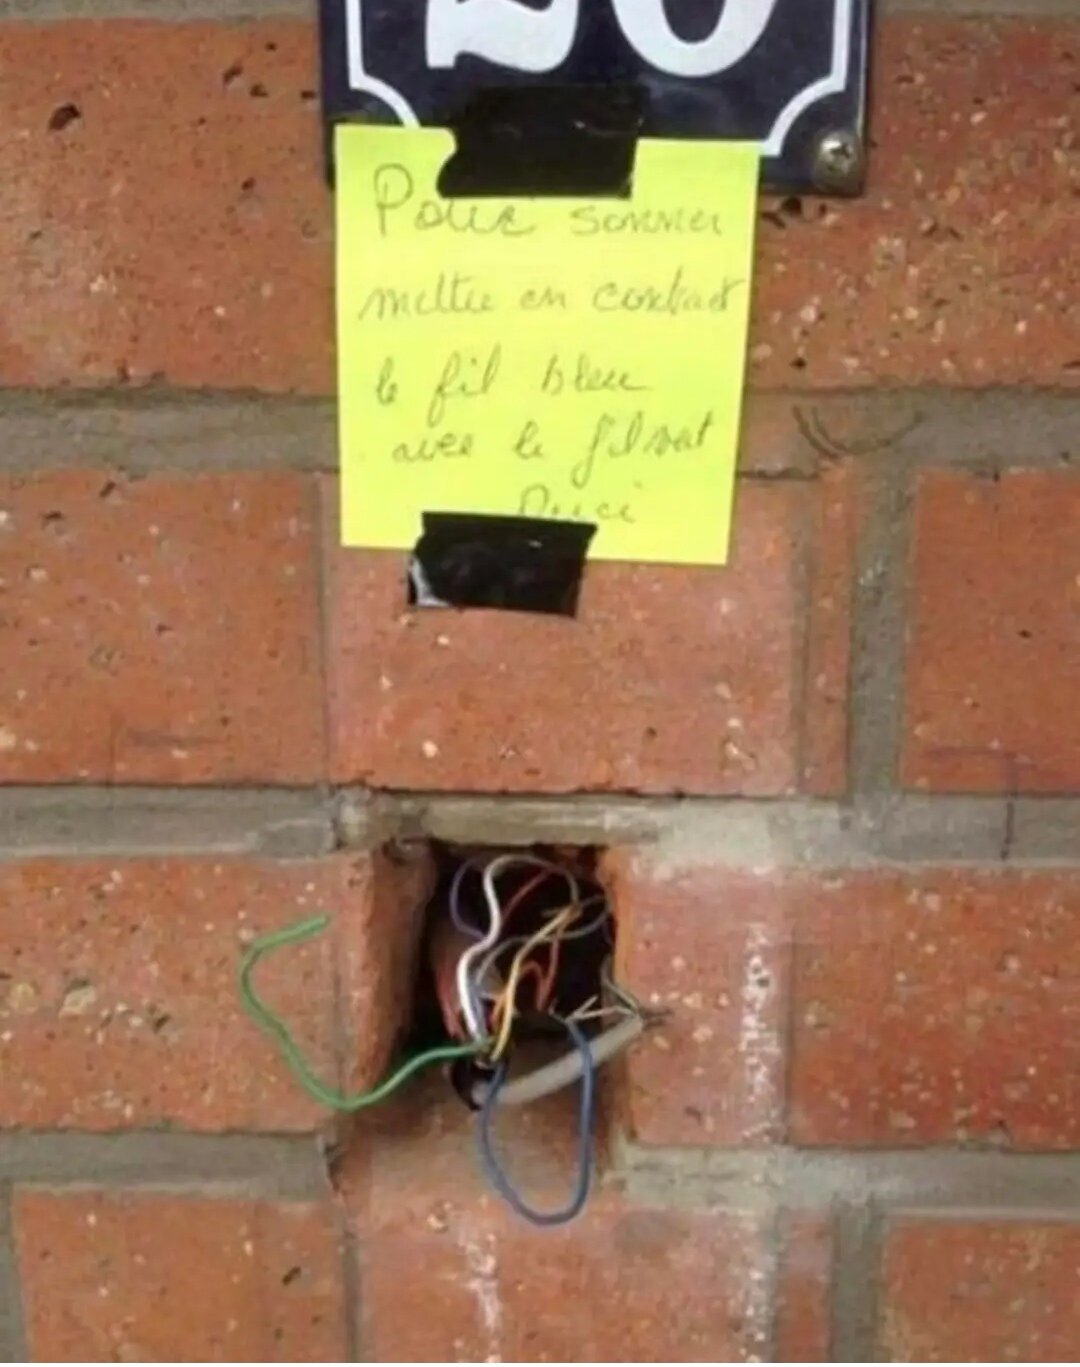 20
Pour sonner
mettre en contact
le fil bleu
avec le fil vert
Merci